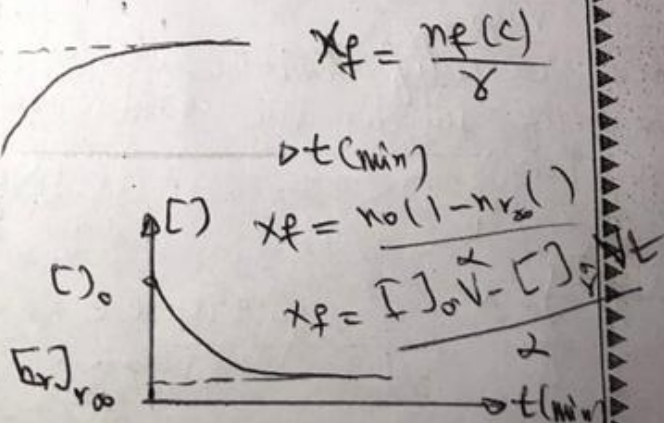 xf = nf(c) / γ
t(min)
[ ]
xf = n₀( ) - nr∞( ) / α
[ ]₀
xf = [ ]₀V - [ ]
α
r∞
t(min)